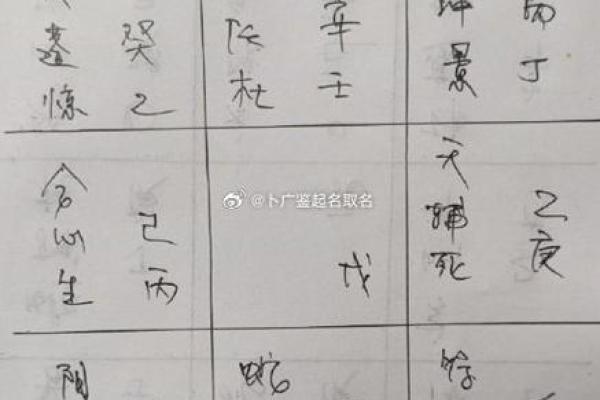 蓬 癸
惊 乙
任 辛
杜 壬
冲 丙
景 丁
合
心 己
生 丙
@卜广鉴起名取名
戊
天
辅 乙
死 庚
阴
蛇
符